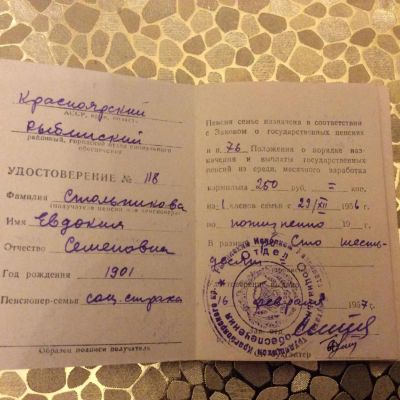 Красноярский
АССР, край, область
Рыбинский
районный, городской отдел социального
обеспечения
УДОСТОВЕРЕНИЕ № 118
Фамилия Стольникова
(получателя пенсии
Имя Евдокия
Отчество Семеновна
Год рождения 1901
Пенсионер-семья соц. страха
Образец подписи получателя
Пенсия семье назначена в соответствии
с Законом о государственных пенсиях
и п. 76 Положения о порядке наз-
начения и выплаты государственных
пенсий из среднемесячного заработка
кормильца 250 руб. = коп.
на 1 членов семьи с 29/XII 1956 г.
по пожизненно 19 г.
В размере Сто шесть-
десят
16 февраля 1957 г.